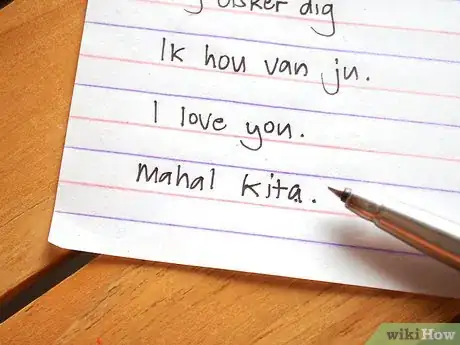 dig
Ik hou van ju.
I love you.
Mahal kita.
wikiHow